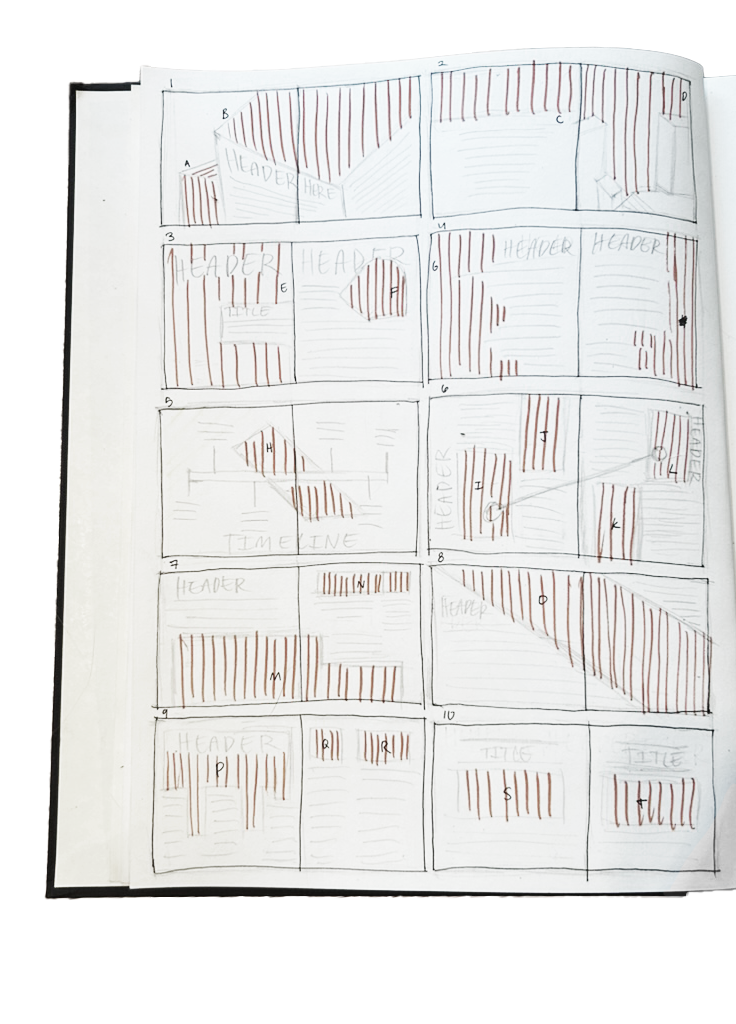 1
B
A
HEADER
HERE
2
D
C
3
HEADER
E
TITLE
HEADER
F
4
G
HEADER
HEADER
5
H
TIMELINE
6
J
HEADER
I
HEADER
L
K
7
HEADER
N
M
8
HEADER
O
9
HEADER
P
Q
R
10
TITLE
S
TITLE
T